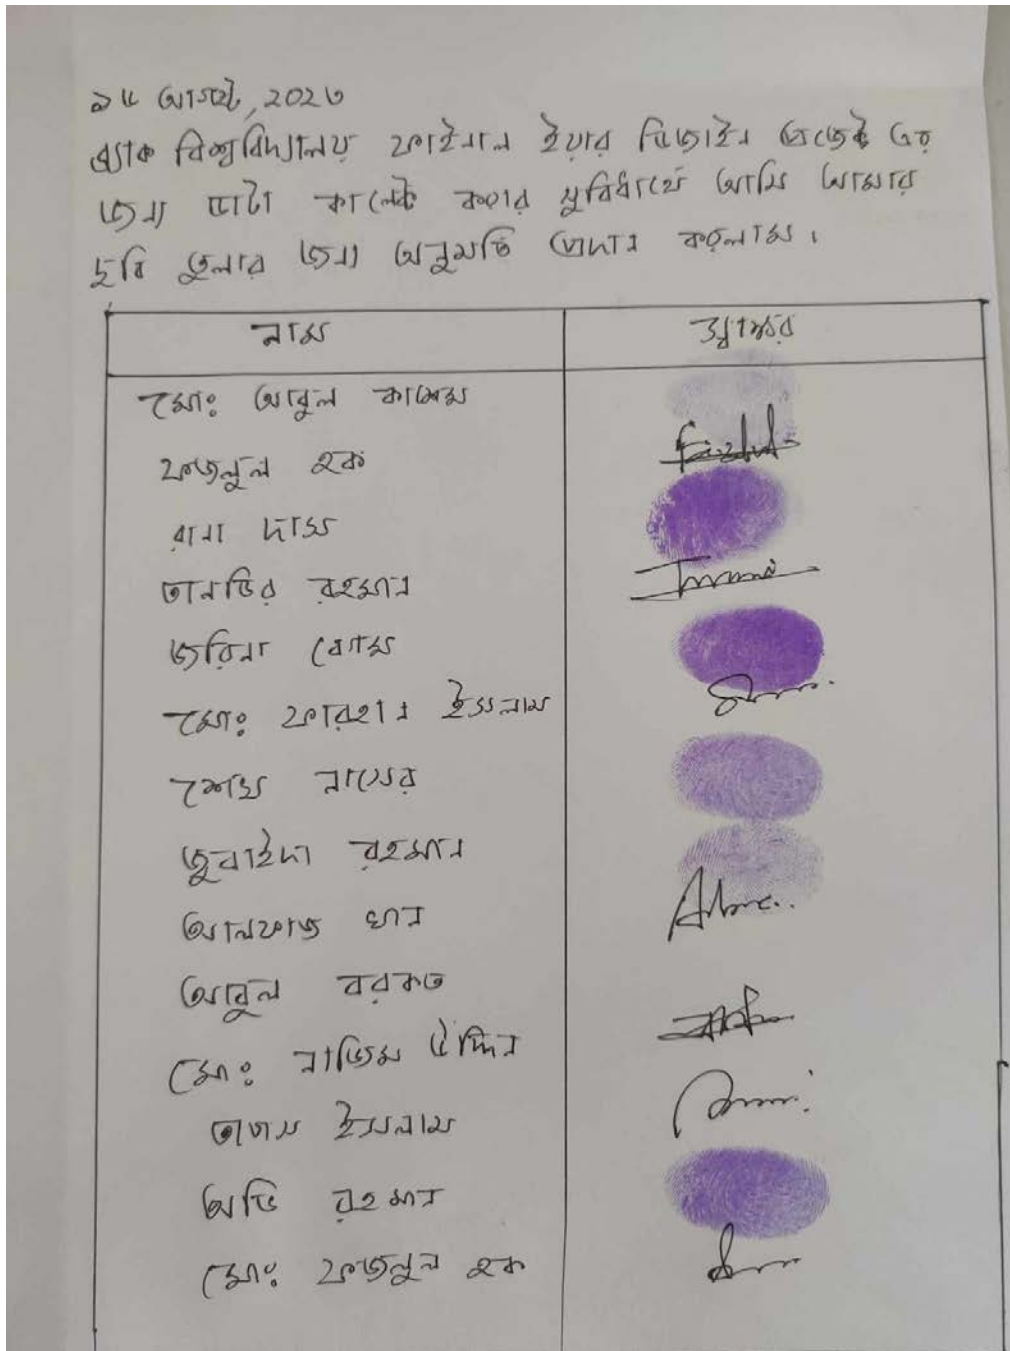 ১৫ আগস্ট, ২০২৩
ব্র্যাক বিশ্ববিদ্যালয় ফাইনাল ইয়ার ডিজাইন প্রজেক্ট এর
জন্য ডাটা কালেক্ট করার সুবিধার্থে আমি আমার
ছবি তুলার জন্য অনুমতি প্রদান করলাম।
নাম স্বাক্ষর
মোঃ আবুল কাশেম
ফজলুল হক
রানা দাস
তানভির রহমান
জরিনা বেগম
মোঃ ফারহান ইসলাম
শেখ নাসের
জুবাইদা রহমান
আলফাজ খান
আবুল বরকত
মোঃ নাজিম উদ্দিন
ইসলাম
অভি রহমান
মোঃ ফজলুল হক